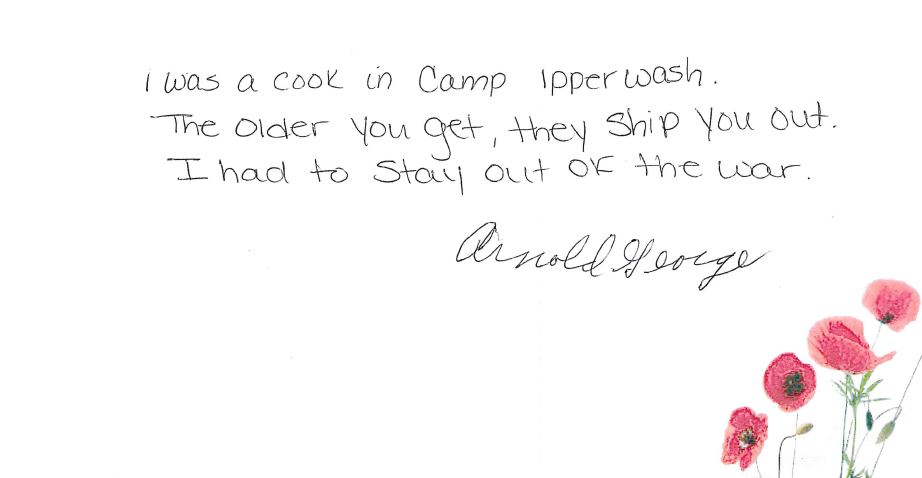 I was a cook in Camp Ipperwash.
The older you get, they ship you out.
I had to stay out of the war.
Arnold George